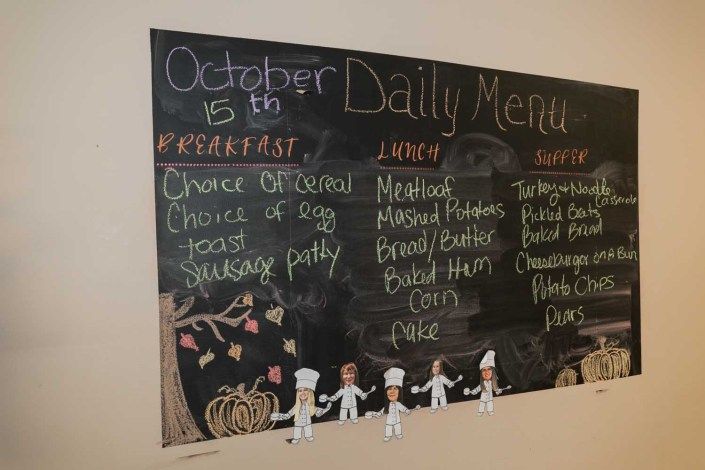 October 15th
Daily Menu
BREAKFAST
Choice Of cereal
Choice of egg
toast
Sausage patty
LUNCH
Meatloaf
Mashed Potatoes
Bread/Butter
Baked Ham
Corn
Cake
SUPPER
Turkey & Noodle Casserole
Pickled Beats
Baked Bread
Cheeseburger on A Bun
Potato Chips
Pears